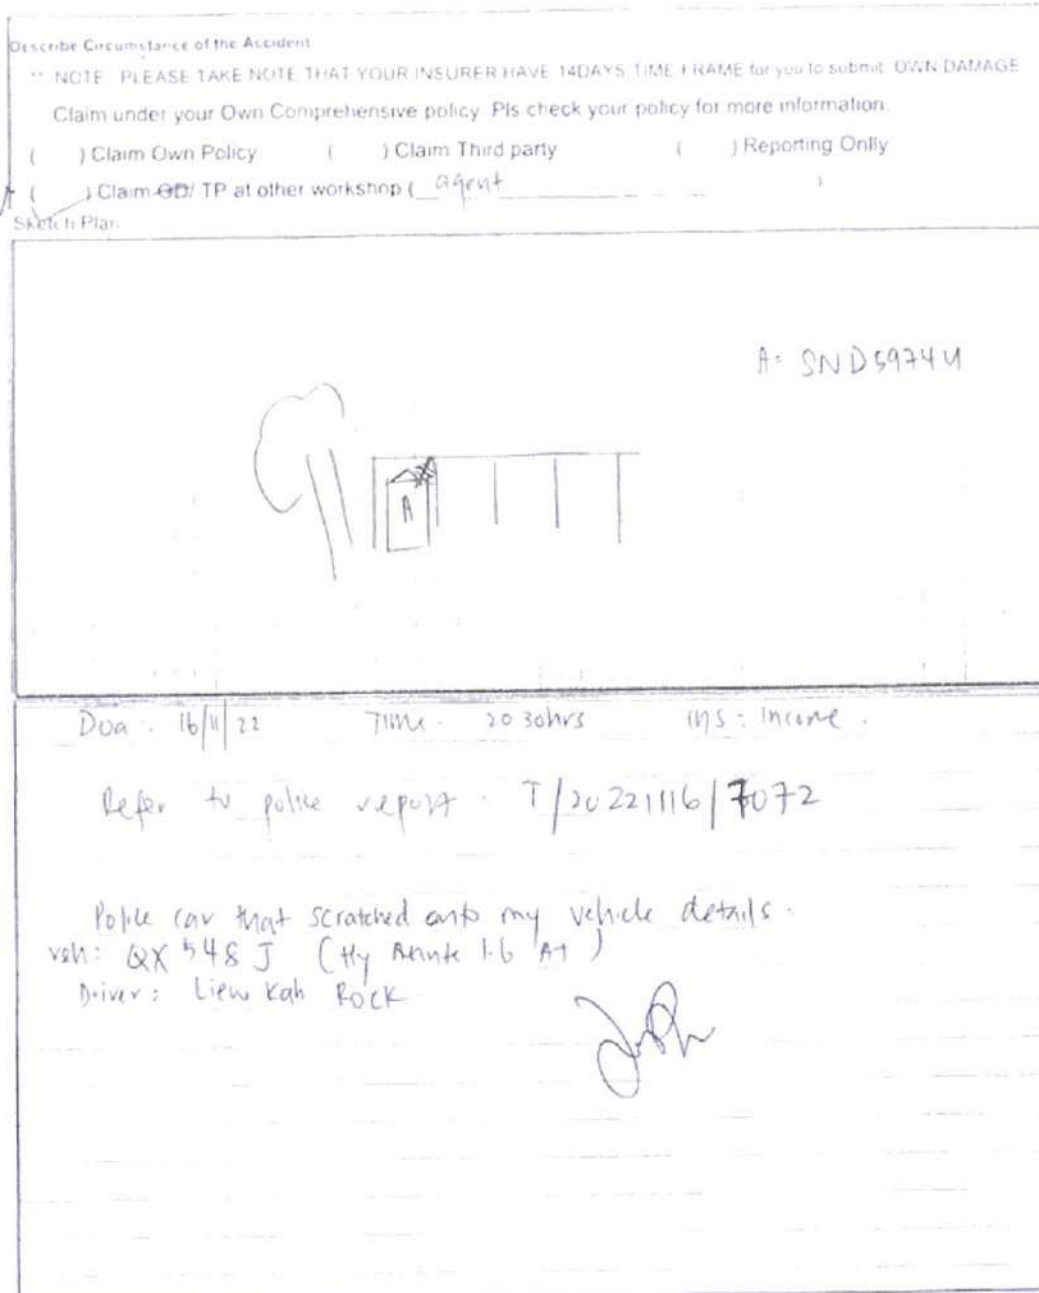 Describe Circumstance of the Accident
** NOTE PLEASE TAKE NOTE THAT YOUR INSURER HAVE 14DAYS TIME FRAME for you to submit OWN DAMAGE
Claim under your Own Comprehensive policy Pls check your policy for more information.
( ) Claim Own Policy ( ) Claim Third party ( ) Reporting Onlly
( ) Claim OD/ TP at other workshop ( agent )
Sketch Plan
A: SND5974U
A
Doa: 16/11/22 Time. 2030hrs ins: Income.
Refer to police report. T/20221116/7072
Police car that scratched onto my vehicle details.
veh: QX 548 J (Hy 1.6 AT)
Driver: Liew Kah Rock